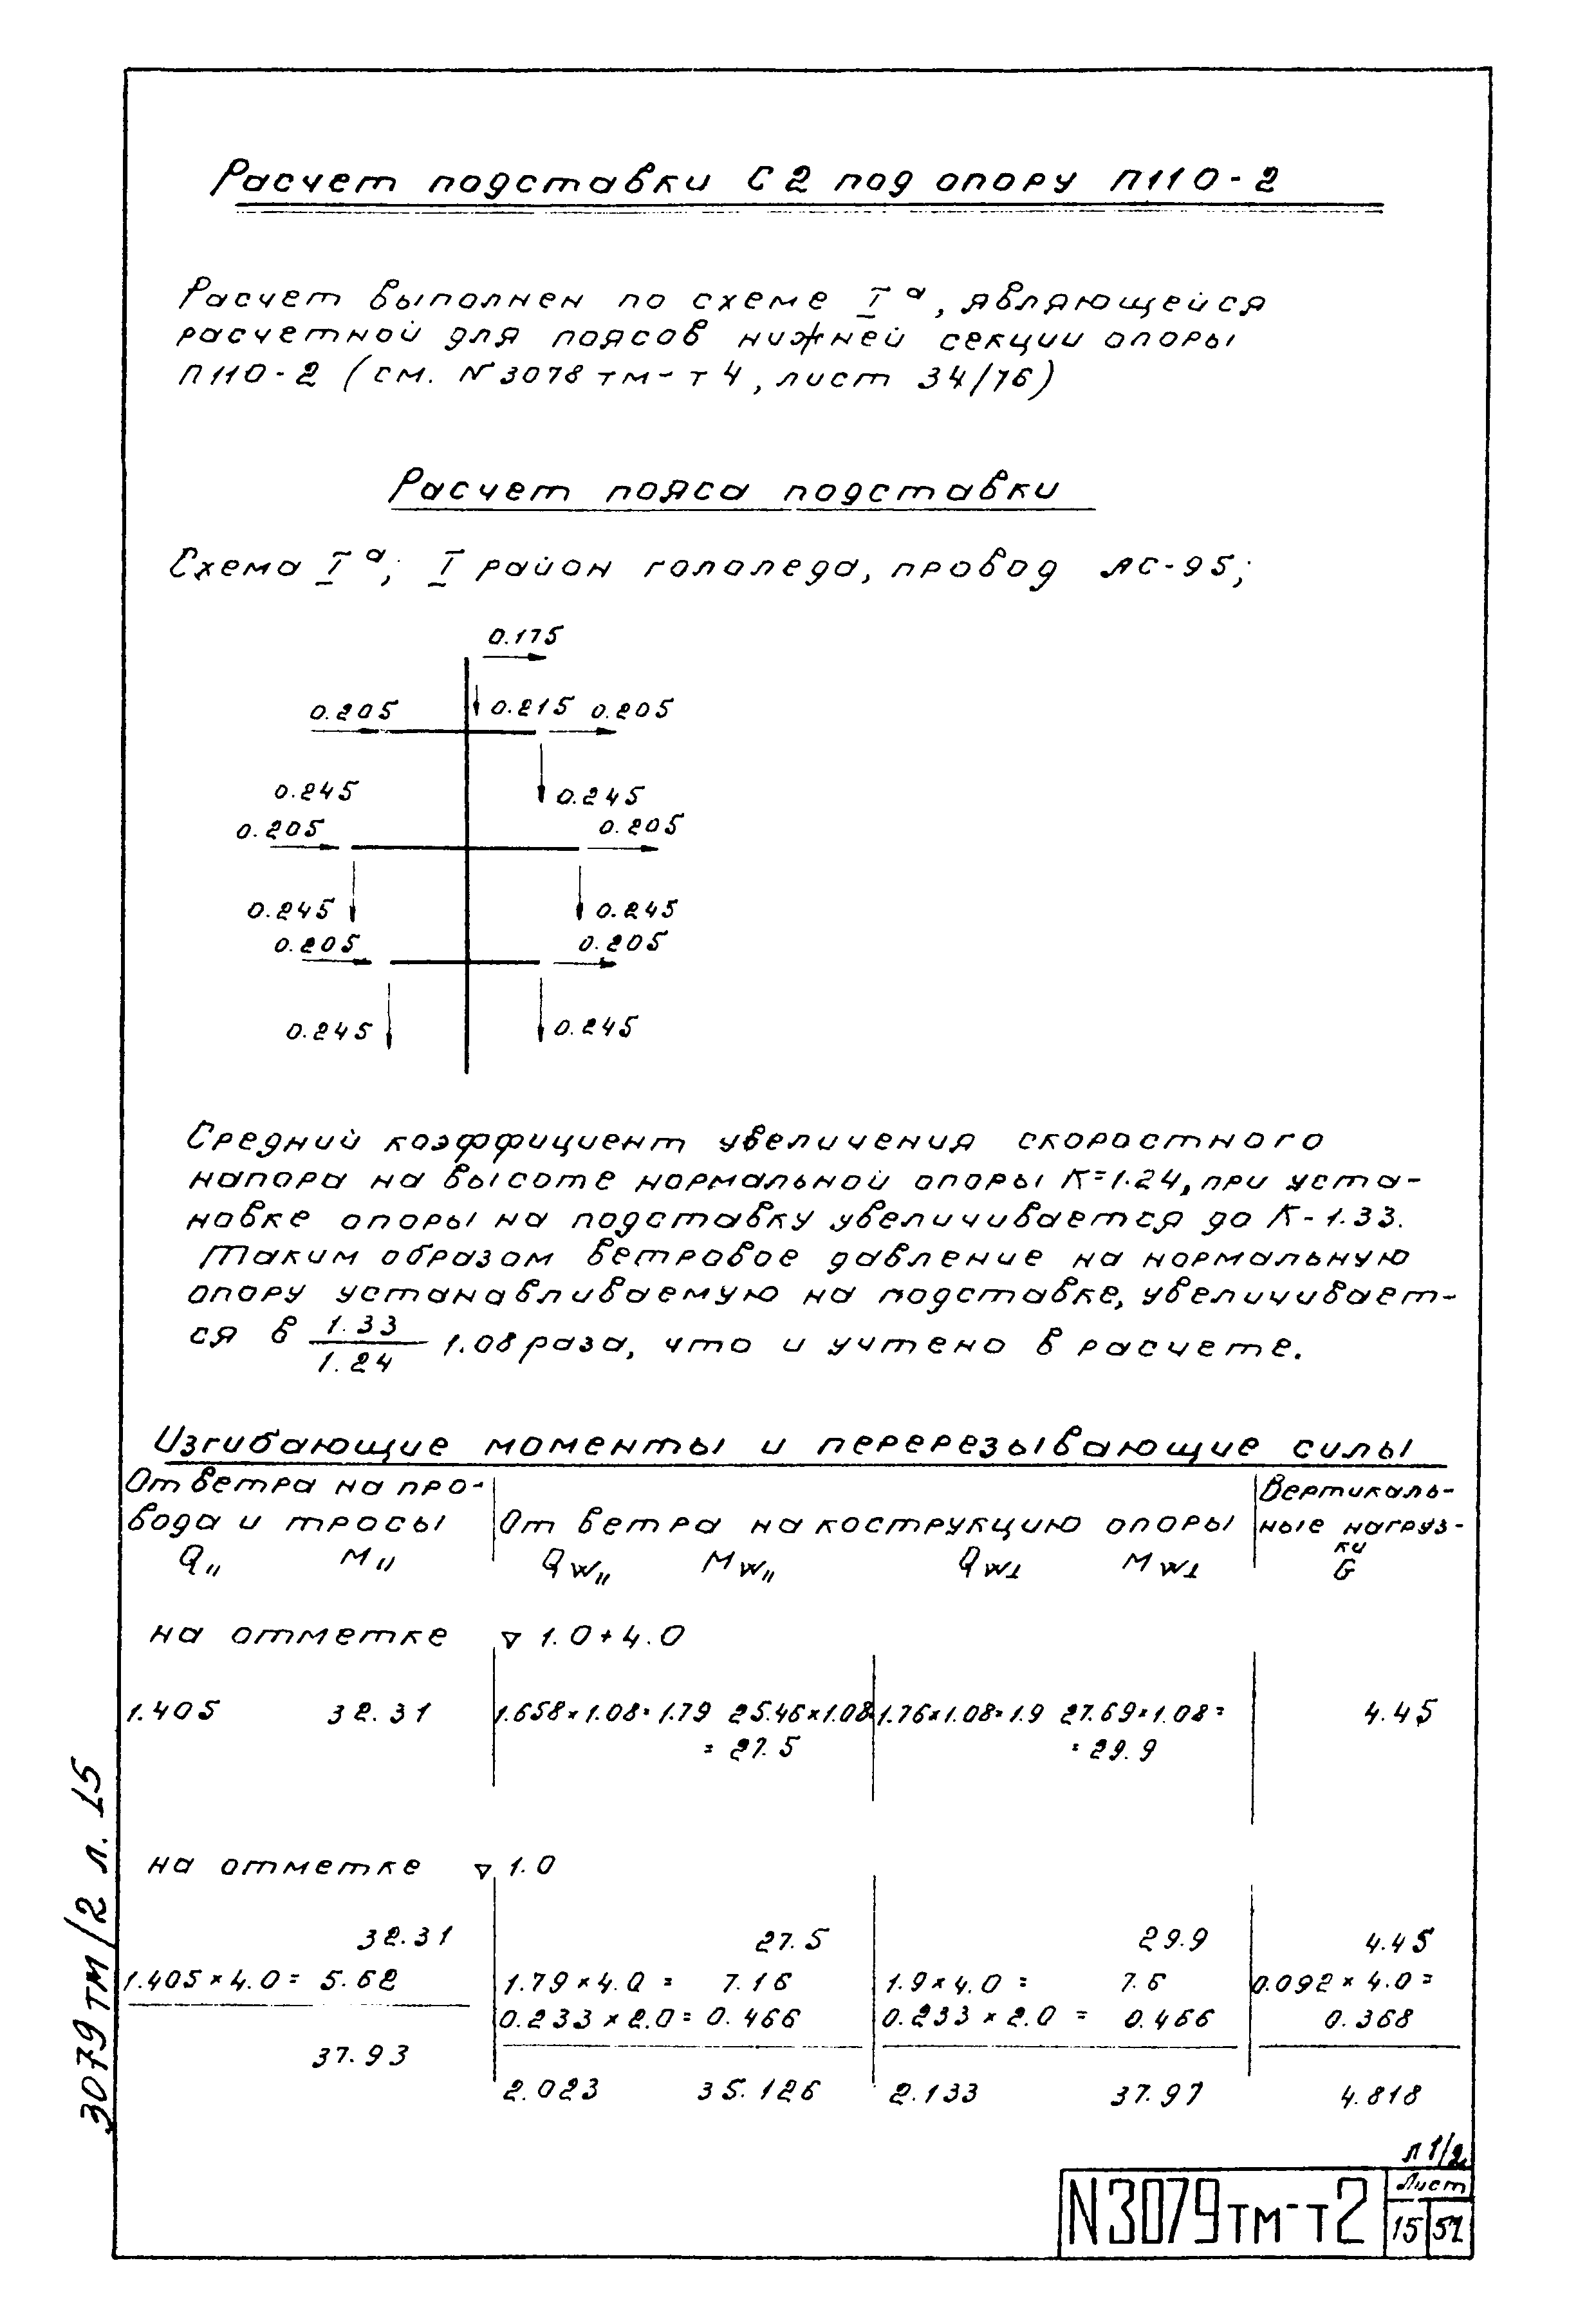 Расчет подставки С2 под опору П110-2
Расчет выполнен по схеме Iа, являющейся
расчетной для поясов нижней секции опоры
П110-2 (см. N3078тм-т4, лист 34/76)
Расчет пояса подставки
Схема Iа; I район гололеда, провод АС-95;
0.175
0.205 0.215 0.205
0.245 0.245
0.205 0.205
0.245 0.245
0.205 0.205
0.245 0.245
Средний коэффициент увеличения скоростного
напора на высоте нормальной опоры К=1.24, при уста-
новке опоры на подставку увеличивается до К-1.33.
Таким образом ветровое давление на нормальную
опору устанавливаемую на подставке, увеличивает-
ся в 1.33/1.24 1.08 раза, что и учтено в расчете.
Изгибающие моменты и перерезывающие силы
От ветра на про-
вода и тросы
Q" М"
От ветра на кострукцию опоры
Qw" Мw" Qw⊥ Мw⊥
Вертикаль-
ные нагруз-
ки
G
на отметке ▽ 1.0+4.0
1.405 32.31 1.658×1.08=1.79 25.46×1.08 1.76×1.08=1.9 27.69×1.08= 4.45
= 27.5 = 29.9
на отметке ▽ 1.0
32.31 27.5 29.9 4.45
1.405×4.0= 5.62 1.79×4.0 = 7.16 1.9×4.0 = 7.6 0.092×4.0=
0.233×2.0= 0.466 0.233×2.0 = 0.466 0.368
37.93
2.023 35.126 2.133 37.97 4.818
3079тм/2 л. 15
л 1/2
N3079тм-т2
Лист
15 51